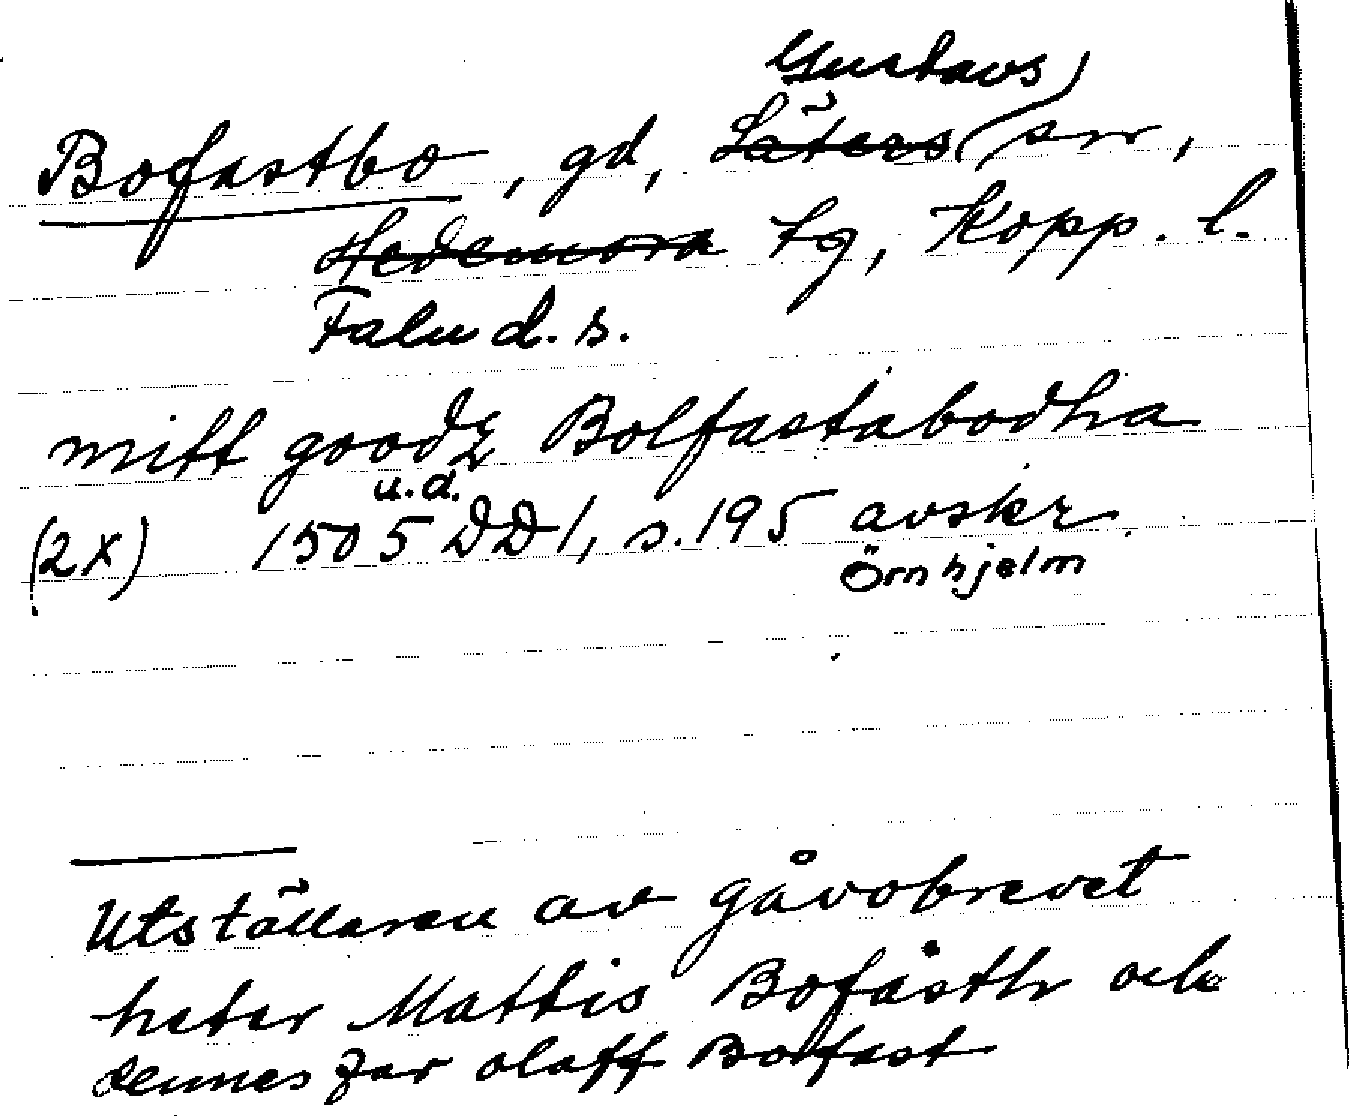 Gustavs
Bofastbo, gd, Säters sn,
Hedemora tg, Kopp. l.
Falu d. s.
mitt goodz Bolfastabodha
u.d.
(2X) 1505 DD1, s. 195 avskr.
Örnhjelm
Utställaren av gåvobrevet
heter Mattis Bofåsth och
dennes far olaff Bofast